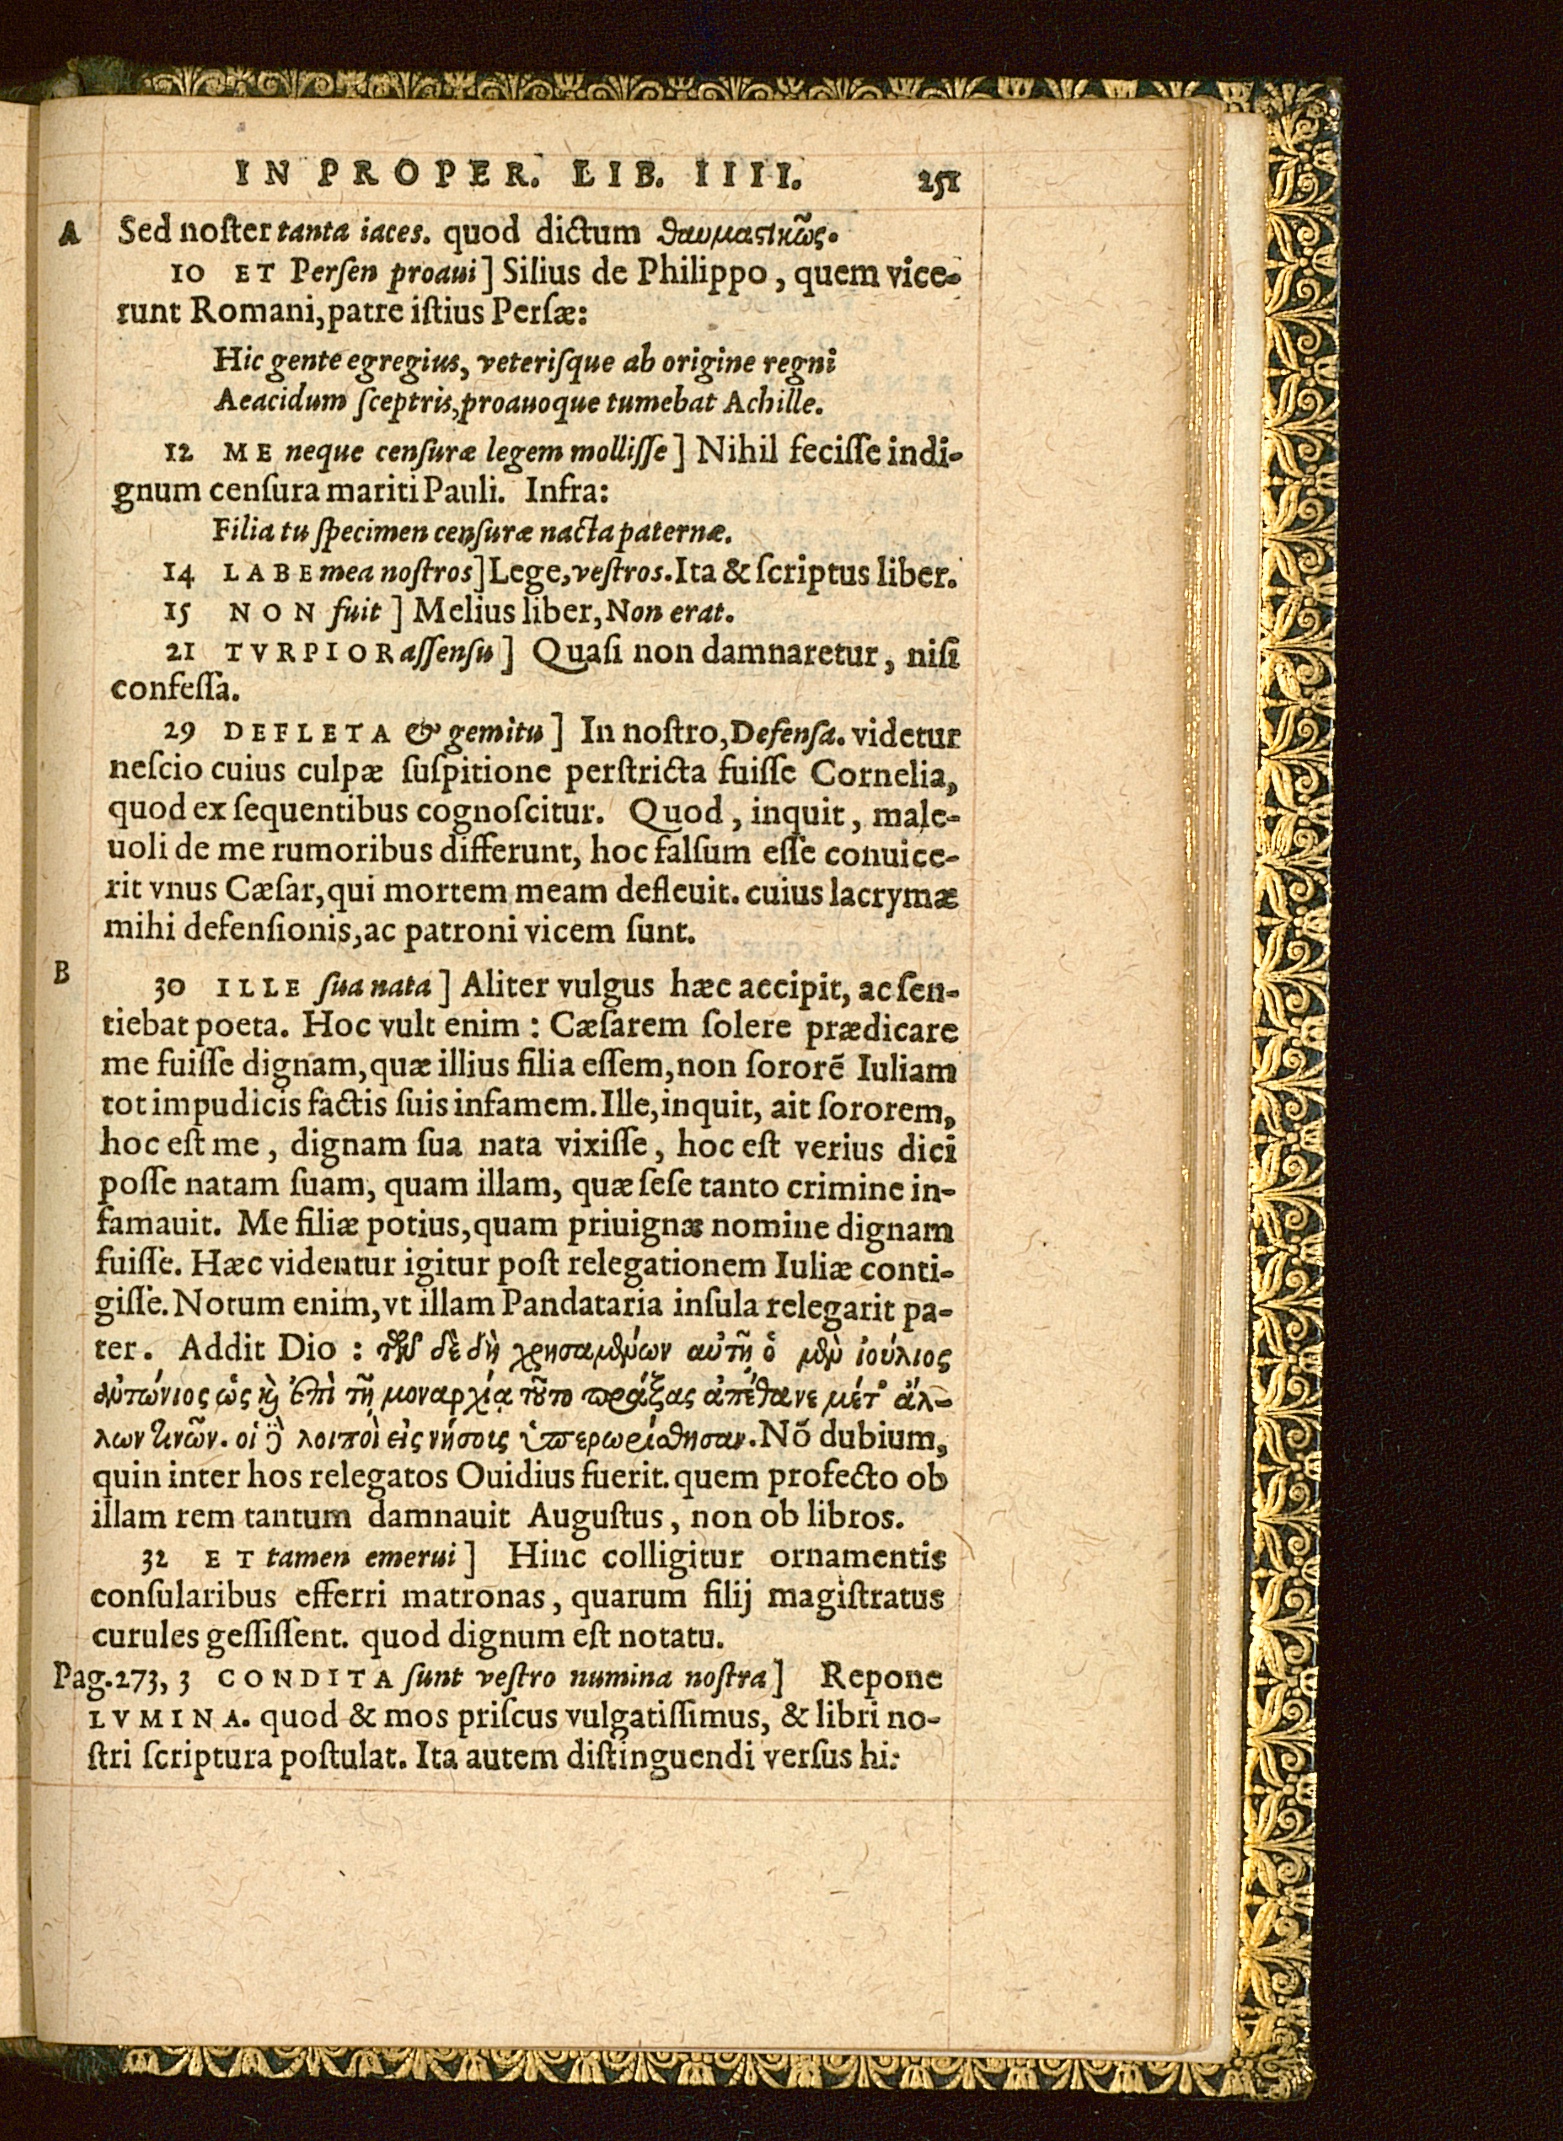 IN PROPER. LIB. IIII. 251
A Sed noſter tanta iaces. quod dictum θαυμαϛικῶς.
10 ET Perſen proaui] Silius de Philippo, quem vice-
runt Romani, patre iſtius Perſæ:
Hic gente egregius, veteriſque ab origine regni
Aeacidum ſceptris, proauoque tumebat Achille.
12 ME neque cenſuræ legem molliſſe] Nihil feciſſe indi-
gnum cenſura mariti Pauli. Infra:
Filia tu ſpecimen cenſuræ nacta paternæ.
14 LABE mea noſtros] Lege, veſtros. Ita & ſcriptus liber.
15 NON fuit] Melius liber, Non erat.
21 TVRPIOR aſſenſu] Quaſi non damnaretur, niſi
confeſſa.
29 DEFLETA & gemitu] In noſtro, Defenſa. videtur
neſcio cuius culpæ ſuſpitione perſtricta fuiſſe Cornelia,
quod ex ſequentibus cognoſcitur. Quod, inquit, male-
uoli de me rumoribus differunt, hoc falſum eſſe conuice-
rit vnus Cæſar, qui mortem meam defleuit. cuius lacrymæ
mihi defenſionis, ac patroni vicem ſunt.
B
30 ILLE ſua nata] Aliter vulgus hæc accipit, ac ſen-
tiebat poeta. Hoc vult enim: Cæſarem ſolere prædicare
me fuiſſe dignam, quæ illius filia eſſem, non ſororē Iuliam
tot impudicis factis ſuis infamem. Ille, inquit, ait ſororem,
hoc eſt me, dignam ſua nata vixiſſe, hoc eſt verius dici
poſſe natam ſuam, quam illam, quæ ſeſe tanto crimine in-
famauit. Me filiæ potius, quam priuignæ nomine dignam
fuiſſe. Hæc videntur igitur poſt relegationem Iuliæ conti-
giſſe. Notum enim, vt illam Pandataria inſula relegarit pa-
ter. Addit Dio: τῶν δὲ δὴ χρησαμένων αὐτῇ ὁ μὲν ἰούλιος
ἀντώνιος ὡς καὶ ἐπὶ τῇ μοναρχίᾳ τοῦτο πράξας ἀπέθανε μέτ' ἄλ-
λων τινῶν. οἱ δὲ λοιποὶ εἰς νήσους ὑπερωρίσθησαν. Nō dubium,
quin inter hos relegatos Ouidius fuerit. quem profecto ob
illam rem tantum damnauit Auguſtus, non ob libros.
32 ET tamen emerui] Hinc colligitur ornamentis
conſularibus efferri matronas, quarum filij magiſtratus
curules geſſiſſent. quod dignum eſt notatu.
Pag. 273, 3 CONDITA ſunt veſtro numina noſtra] Repone
LVMINA. quod & mos priſcus vulgatiſſimus, & libri no-
ſtri ſcriptura poſtulat. Ita autem diſtinguendi verſus hi: